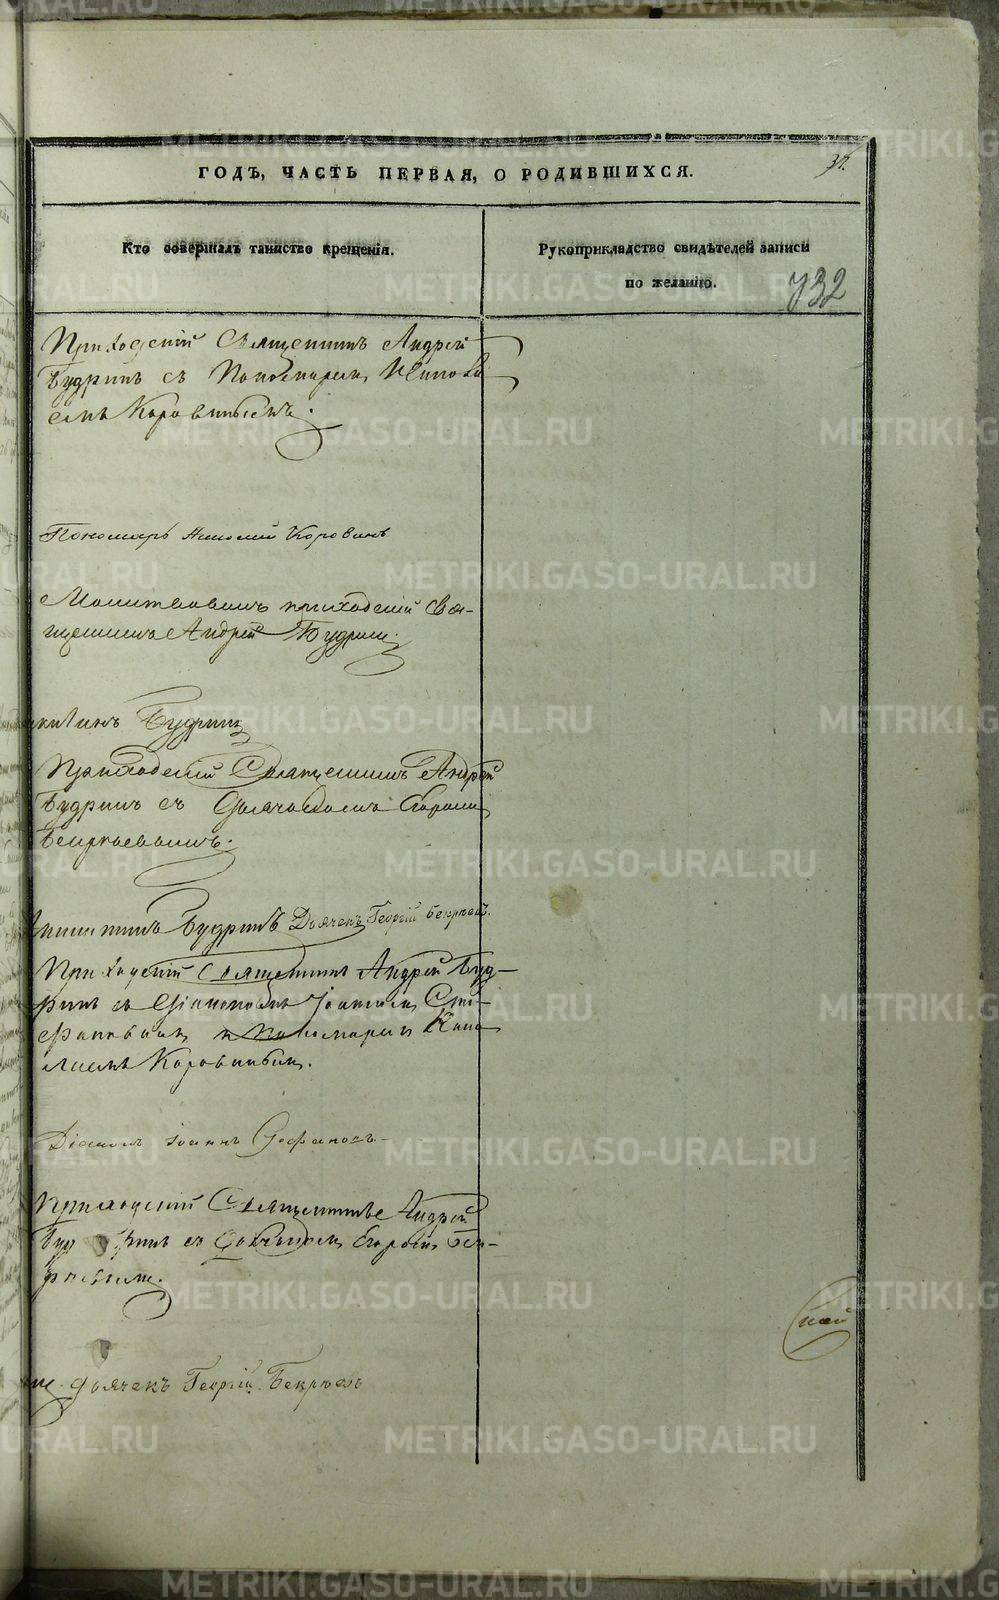 37.
ГОДЪ, ЧАСТЬ ПЕРВАЯ, О РОДИВШИХСЯ.
Кто совершалъ таинство крещенія.
Рукоприкладство свидѣтелей записи
по желанію.
732
Приходскій Священникъ Андрей
Будринъ съ Пономаремъ
Коровинымъ.
Пономарь Коровинъ
Молитвовалъ приходскій Свя-
щенникъ Андрей Будринъ.
Будринъ
Приходскій Священникъ Андрей
Будринъ съ Дьячкомъ Егоромъ
Бекрѣевымъ.
Будринъ Дьячекъ Георгій Бекрѣевъ.
Приходскій Священникъ Андрей Буд-
ринъ съ Діакономъ Іоанномъ Сте-
фановымъ и Пономаремъ
Коровинымъ.
Діаконъ Іоаннъ Стефановъ
Приходскій Священникъ Андрей
Будринъ съ Дьячкомъ Егоромъ Бек-
рѣевымъ.
Дьячекъ Георгій Бекрѣевъ
METRIKI.GASO-URAL.RU